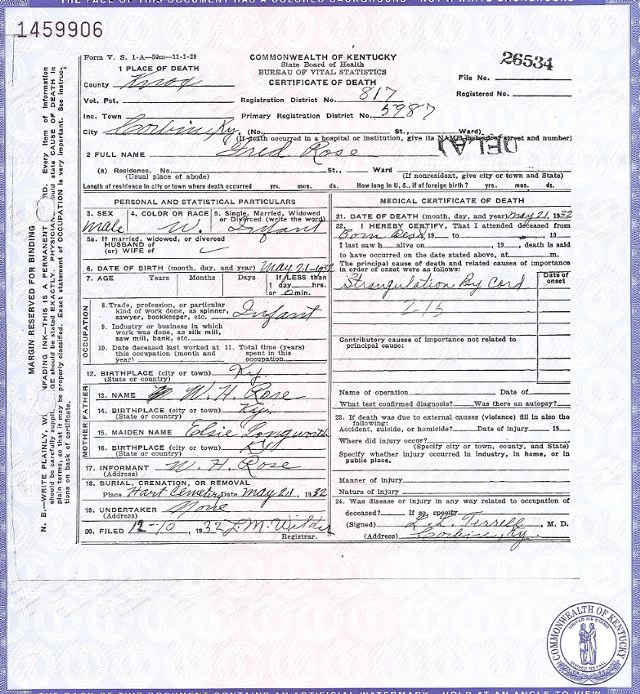 THE FACE OF THIS DOCUMENT HAS A COLORED BACKGROUND - NOT A WHITE BACKGROUND
1459906
Form V. S. 1-A—50m—11-1-29
COMMONWEALTH OF KENTUCKY
State Board of Health
BUREAU OF VITAL STATISTICS
CERTIFICATE OF DEATH
26534
File No.
Registered No.
1 PLACE OF DEATH
County Knox
Vot. Pct.
Registration District No. 817
Inc. Town
Primary Registration District No. 5987
City Corbin, Ky. (No. St., Ward)
(If death occurred in a hospital or institution, give its NAME instead of street and number)
DELAY
2 FULL NAME Fred Rose
(a) Residence. No. St., Ward
(Usual place of abode) (If nonresident, give city or town and State)
Length of residence in city or town where death occurred yrs. mos. ds. How long in U. S., if of foreign birth? yrs. mos. ds.
MARGIN RESERVED FOR BINDING
PERSONAL AND STATISTICAL PARTICULARS
3. SEX male
4. COLOR OR RACE W.
5. Single, Married, Widowed or Divorced (write the word) Infant
5a. If married, widowed, or divorced
HUSBAND of
(or) WIFE of
6. DATE OF BIRTH (month, day, and year) May 21-1932
7. AGE Years Months Days If LESS than
1 day hrs.
or 0 min.
OCCUPATION
8. Trade, profession, or particular
kind of work done, as spinner,
sawyer, bookkeeper, etc. Infant
9. Industry or business in which
work was done, as silk mill,
saw mill, bank, etc.
10. Date deceased last worked at
this occupation (month and
year)
11. Total time (years)
spent in this
occupation
12. BIRTHPLACE (city or town) Ky
(State or country)
FATHER
13. NAME W. H. Rose
14. BIRTHPLACE (city or town) Ky.
(State or country)
MOTHER
15. MAIDEN NAME Elsie Longworth
16. BIRTHPLACE (city or town) Ky
(State or country)
17. INFORMANT W. H. Rose
(Address)
18. BURIAL, CREMATION, OR REMOVAL
Place Hart Cemetery Date May 21, 1932
19. UNDERTAKER None
(Address)
20. FILED 12-10, 1932 L. M. Wilder
Registrar.
MEDICAL CERTIFICATE OF DEATH
21. DATE OF DEATH (month, day, and year) May 21, 1932
22. I HEREBY CERTIFY, That I attended deceased from
Born Dead, 19 to , 19
I last saw h alive on , 19 , death is said
to have occurred on the date stated above, at m.
The principal cause of death and related causes of importance
in order of onset were as follows:
Date of onset
Strangulation By Cord
Contributory causes of importance not related to
principal cause:
Name of operation Date of
What test confirmed diagnosis? Was there an autopsy?
23. If death was due to external causes (violence) fill in also the
following:
Accident, suicide, or homicide? Date of injury 19
Where did injury occur?
(Specify city or town, county, and State)
Specify whether injury occurred in industry, in home, or in
public place.
Manner of injury
Nature of injury
24. Was disease or injury in any way related to occupation of
deceased? If so, specify
(Signed) L. L. Terrell, M. D.
(Address) Corbin, Ky.
COMMONWEALTH OF KENTUCKY